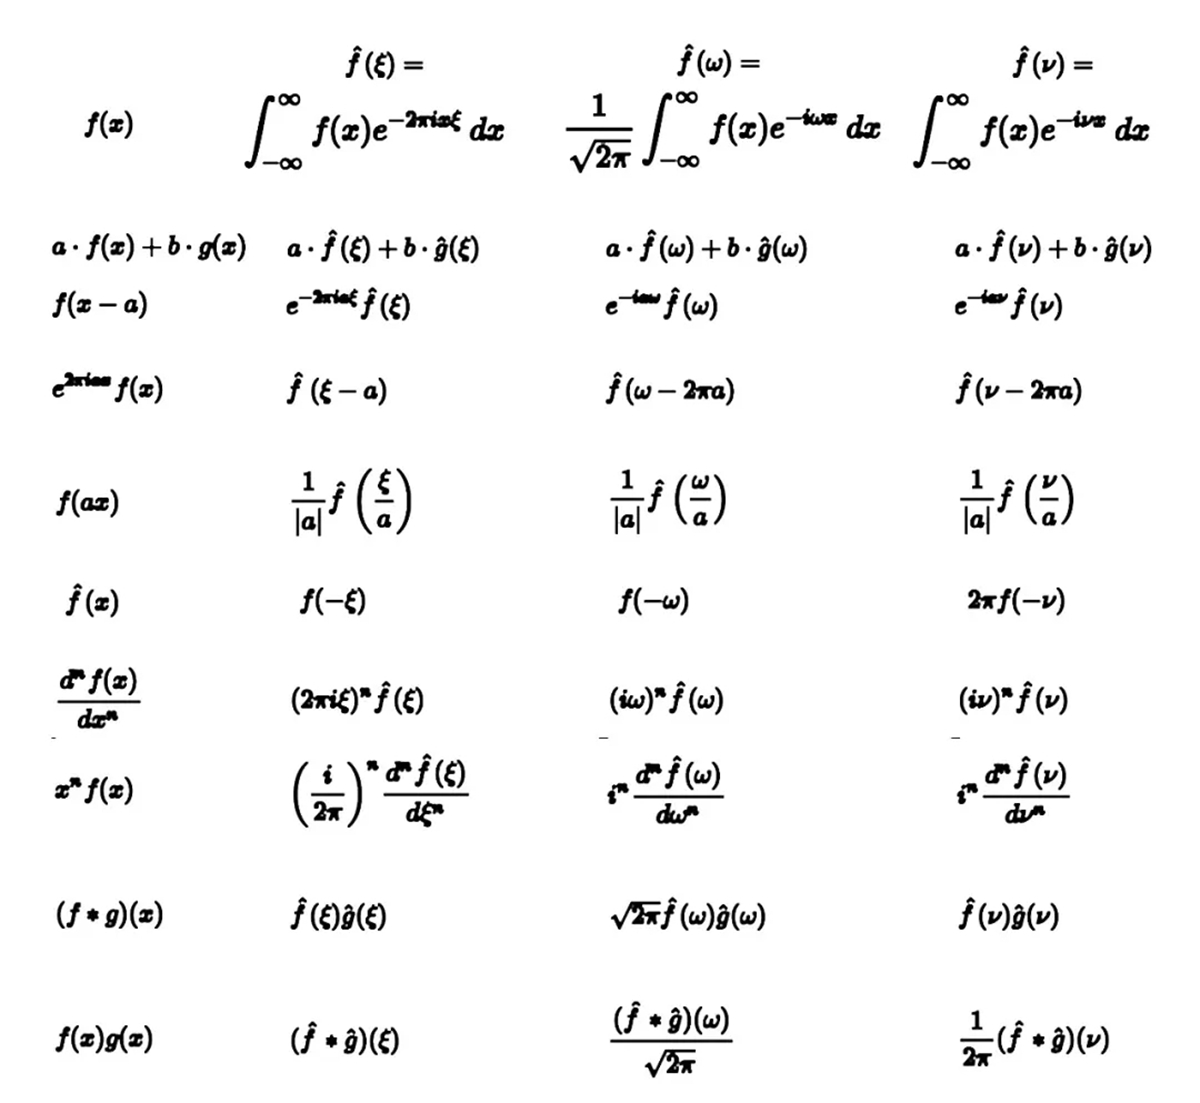 f(x) f̂(ξ) = ∫_{-∞}^{∞} f(x)e^{-2πixξ} dx f̂(ω) = \frac{1}{\sqrt{2π}} ∫_{-∞}^{∞} f(x)e^{-iωx} dx f̂(ν) = ∫_{-∞}^{∞} f(x)e^{-iνx} dx
a · f(x) + b · g(x) a · f̂(ξ) + b · ĝ(ξ) a · f̂(ω) + b · ĝ(ω) a · f̂(ν) + b · ĝ(ν)
f(x − a) e^{-2πiaξ} f̂(ξ) e^{-iaω} f̂(ω) e^{-iaν} f̂(ν)
e^{2πiax} f(x) f̂(ξ − a) f̂(ω − 2πa) f̂(ν − 2πa)
f(ax) \frac{1}{|a|} f̂(\frac{ξ}{a}) \frac{1}{|a|} f̂(\frac{ω}{a}) \frac{1}{|a|} f̂(\frac{ν}{a})
f̂(x) f(−ξ) f(−ω) 2πf(−ν)
\frac{d^n f(x)}{dx^n} (2πiξ)^n f̂(ξ) (iω)^n f̂(ω) (iν)^n f̂(ν)
x^n f(x) (\frac{i}{2π})^n \frac{d^n f̂(ξ)}{dξ^n} i^n \frac{d^n f̂(ω)}{dω^n} i^n \frac{d^n f̂(ν)}{dν^n}
(f * g)(x) f̂(ξ)ĝ(ξ) \sqrt{2π} f̂(ω)ĝ(ω) f̂(ν)ĝ(ν)
f(x)g(x) (f̂ * ĝ)(ξ) \frac{(f̂ * ĝ)(ω)}{\sqrt{2π}} \frac{1}{2π}(f̂ * ĝ)(ν)